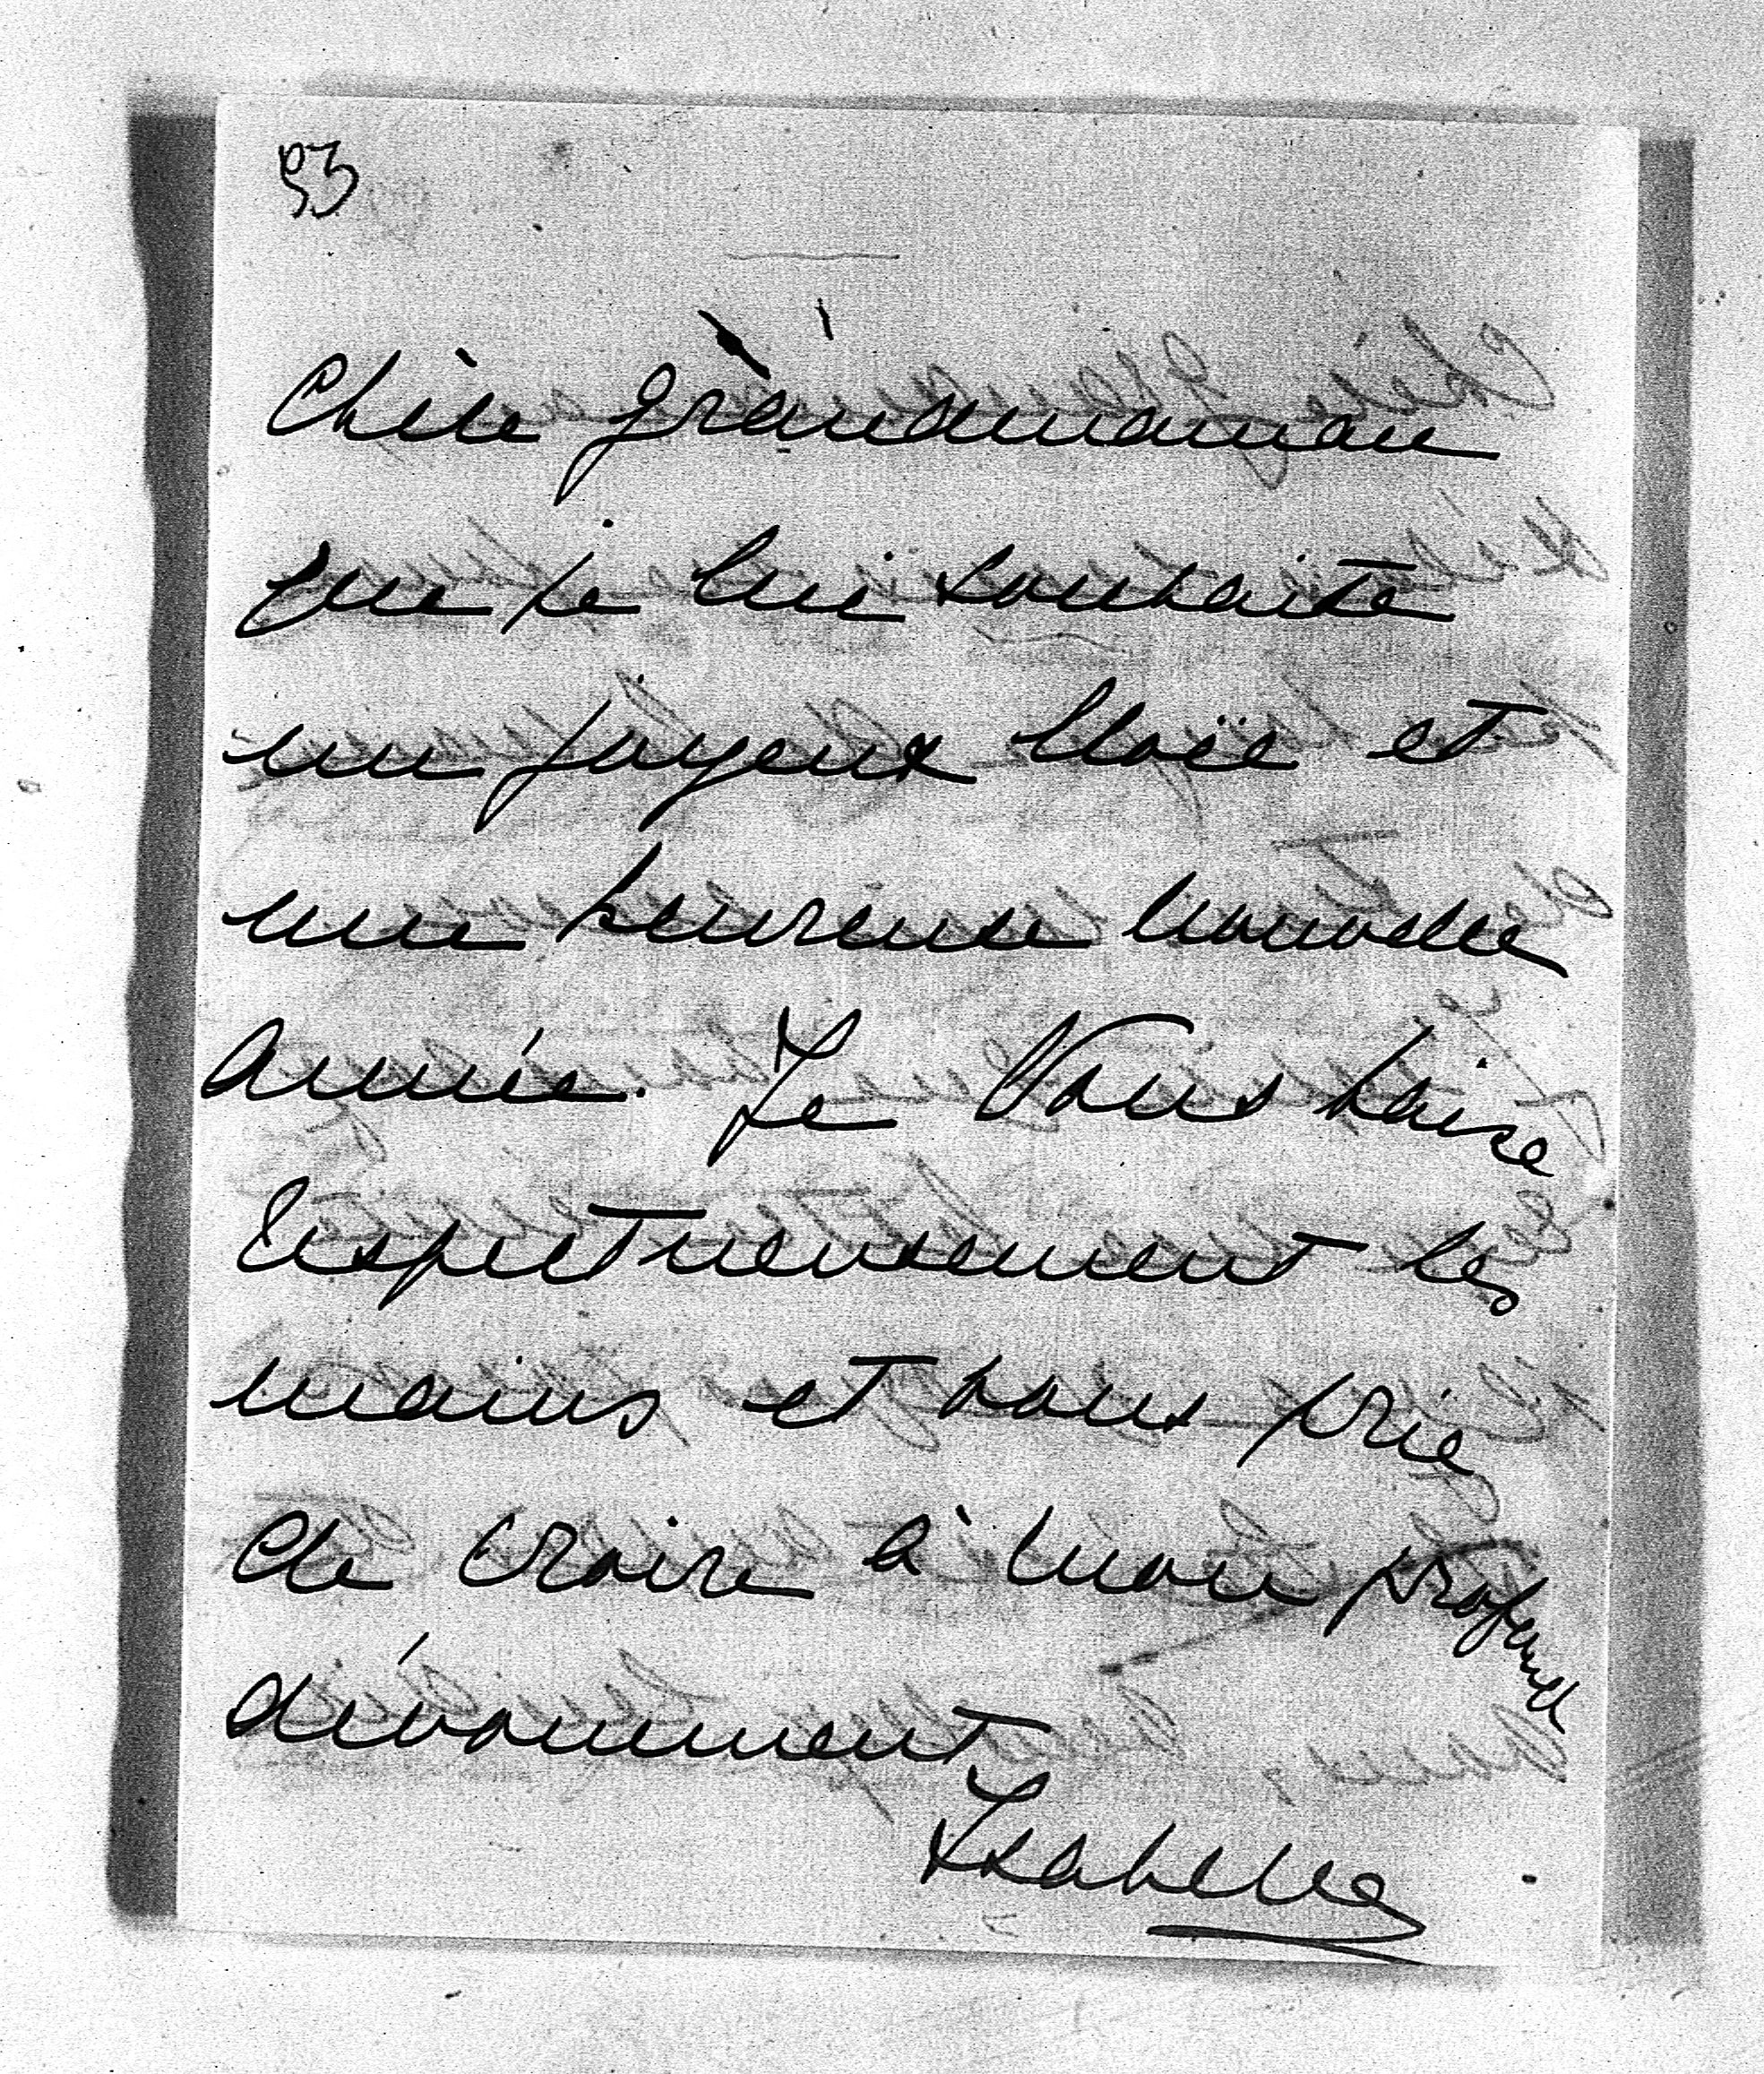 93
Chère grandmaman
que je lui souhaite
un joyeux Noël et
une heureuse nouvelle
année. Je Vous baise
respectueusement les
mains et vous prie
de croire à mon profond
dévouement
Isabelle